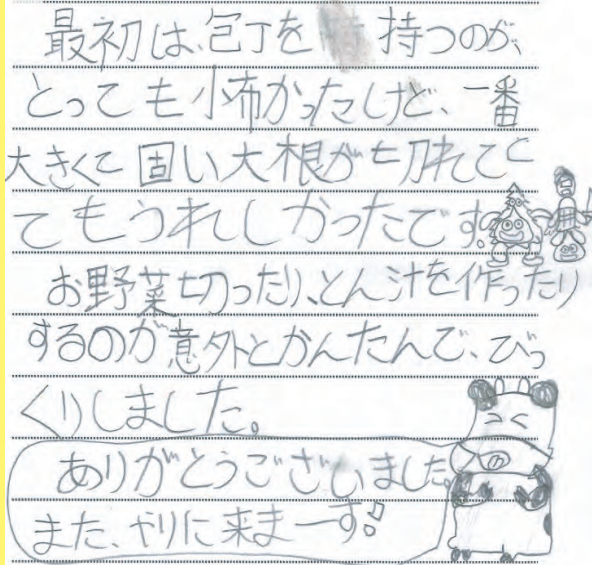 最初は、包丁を持つのが、
とっても怖かったしけど、一番
大きくて固い大根が切れてと
てもうれしかったです。
お野菜切ったり、とん汁を作ったり
するのが意外とかんたんで、びっ
くりしました。
ありがとうございました。
また、やりに来まーす!!